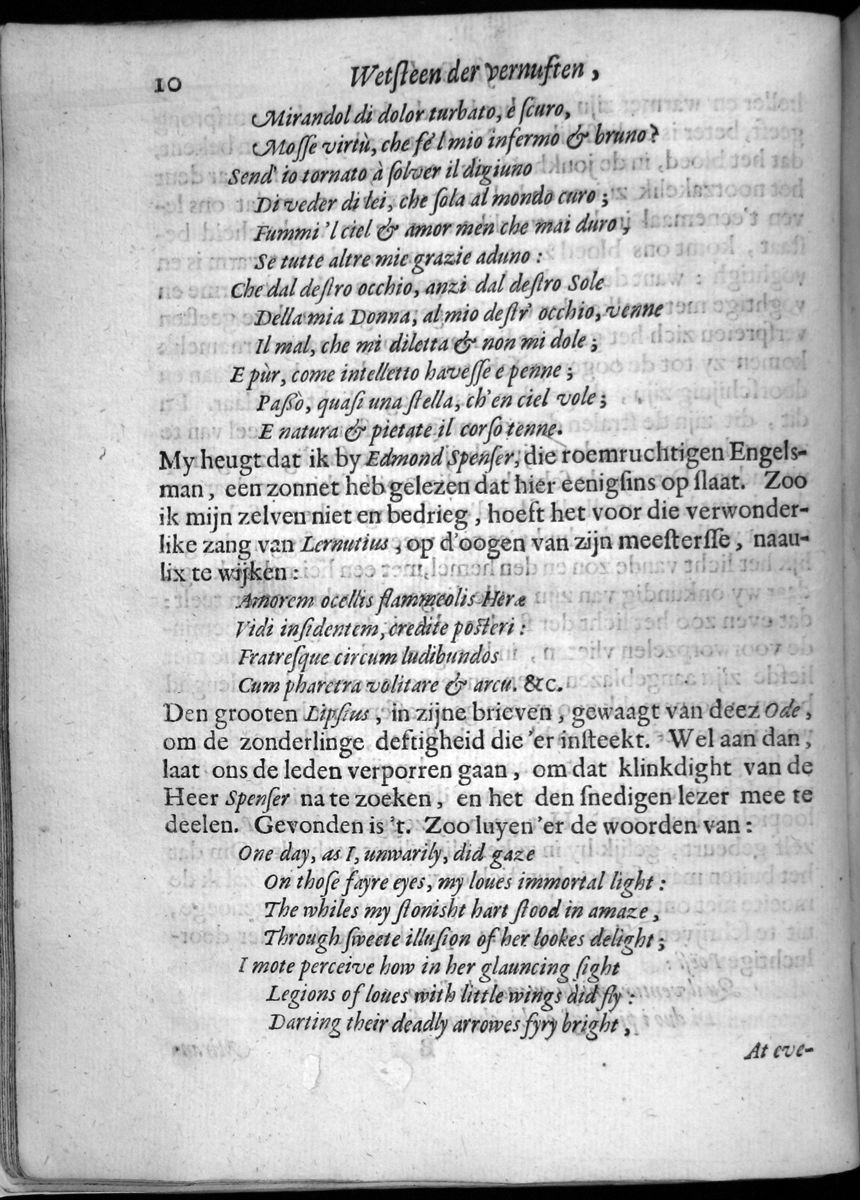 10 Wetſteen der vernuften,
Mirandol di dolor turbato, e ſcuro,
Moſſe virtù, che fé 'l mio infermo & bruno?
Send' io tornato à ſolver il digiuno
Di veder di lei, che ſola al mondo curo;
Fummi 'l ciel & amor men che mai duro,
Se tutte altre mie grazie aduno:
Che dal deſtro occhio, anzi dal deſtro Sole
Della mia Donna, al mio deſtr' occhio, venne
Il mal, che mi diletta & non mi dole;
E pùr, come intelletto haveſſe e penne;
Paßò, quaſi una ſtella, ch'en ciel vole;
E natura & pietate il corſo tenne.
My heugt dat ik by Edmond Spenſer, die roemruchtigen Engels-
man, een zonnet heb gelezen dat hier eenigſins op ſlaat. Zoo
ik mijn zelven niet en bedrieg, hoeft het voor die verwonder-
like zang van Lernutius, op d'oogen van zijn meeſterſſe, naau-
lix te wijken:
Amorem ocellis flammeolis Heræ
Vidi inſidentem, credite poſteri:
Fratreſque circum ludibundos
Cum pharetra volitare & arcu. &c.
Den grooten Lipſius, in zijne brieven, gewaagt van deez Ode,
om de zonderlinge deftigheid die 'er inſteekt. Wel aan dan,
laat ons de leden verporren gaan, om dat klinkdight van de
Heer Spenſer na te zoeken, en het den ſnedigen lezer mee te
deelen. Gevonden is 't. Zoo luyen 'er de woorden van:
One day, as I, unwarily, did gaze
On thoſe fayre eyes, my loues immortal light:
The whiles my ſtonisht hart ſtood in amaze,
Through ſweete illuſion of her lookes delight;
I mote perceive how in her glauncing ſight
Legions of loues with little wings did fly:
Darting their deadly arrowes fyry bright,
At eve-